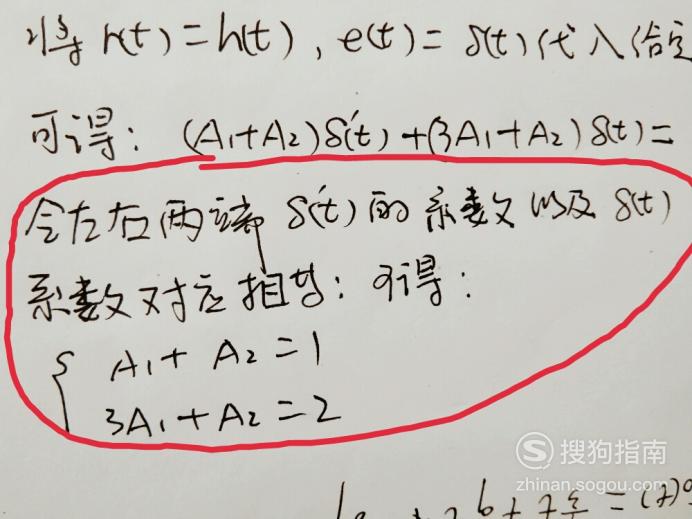 将 r(t)=h(t), e(t)=δ(t)代入给定
可得: (A₁+A₂)δ′(t)+(3A₁+A₂)δ(t)=
令左右两端 δ′(t)的系数以及 δ(t)
系数对应相等: 可得:
{ A₁+A₂=1
3A₁+A₂=2
搜狗指南
zhinan.sogou.com